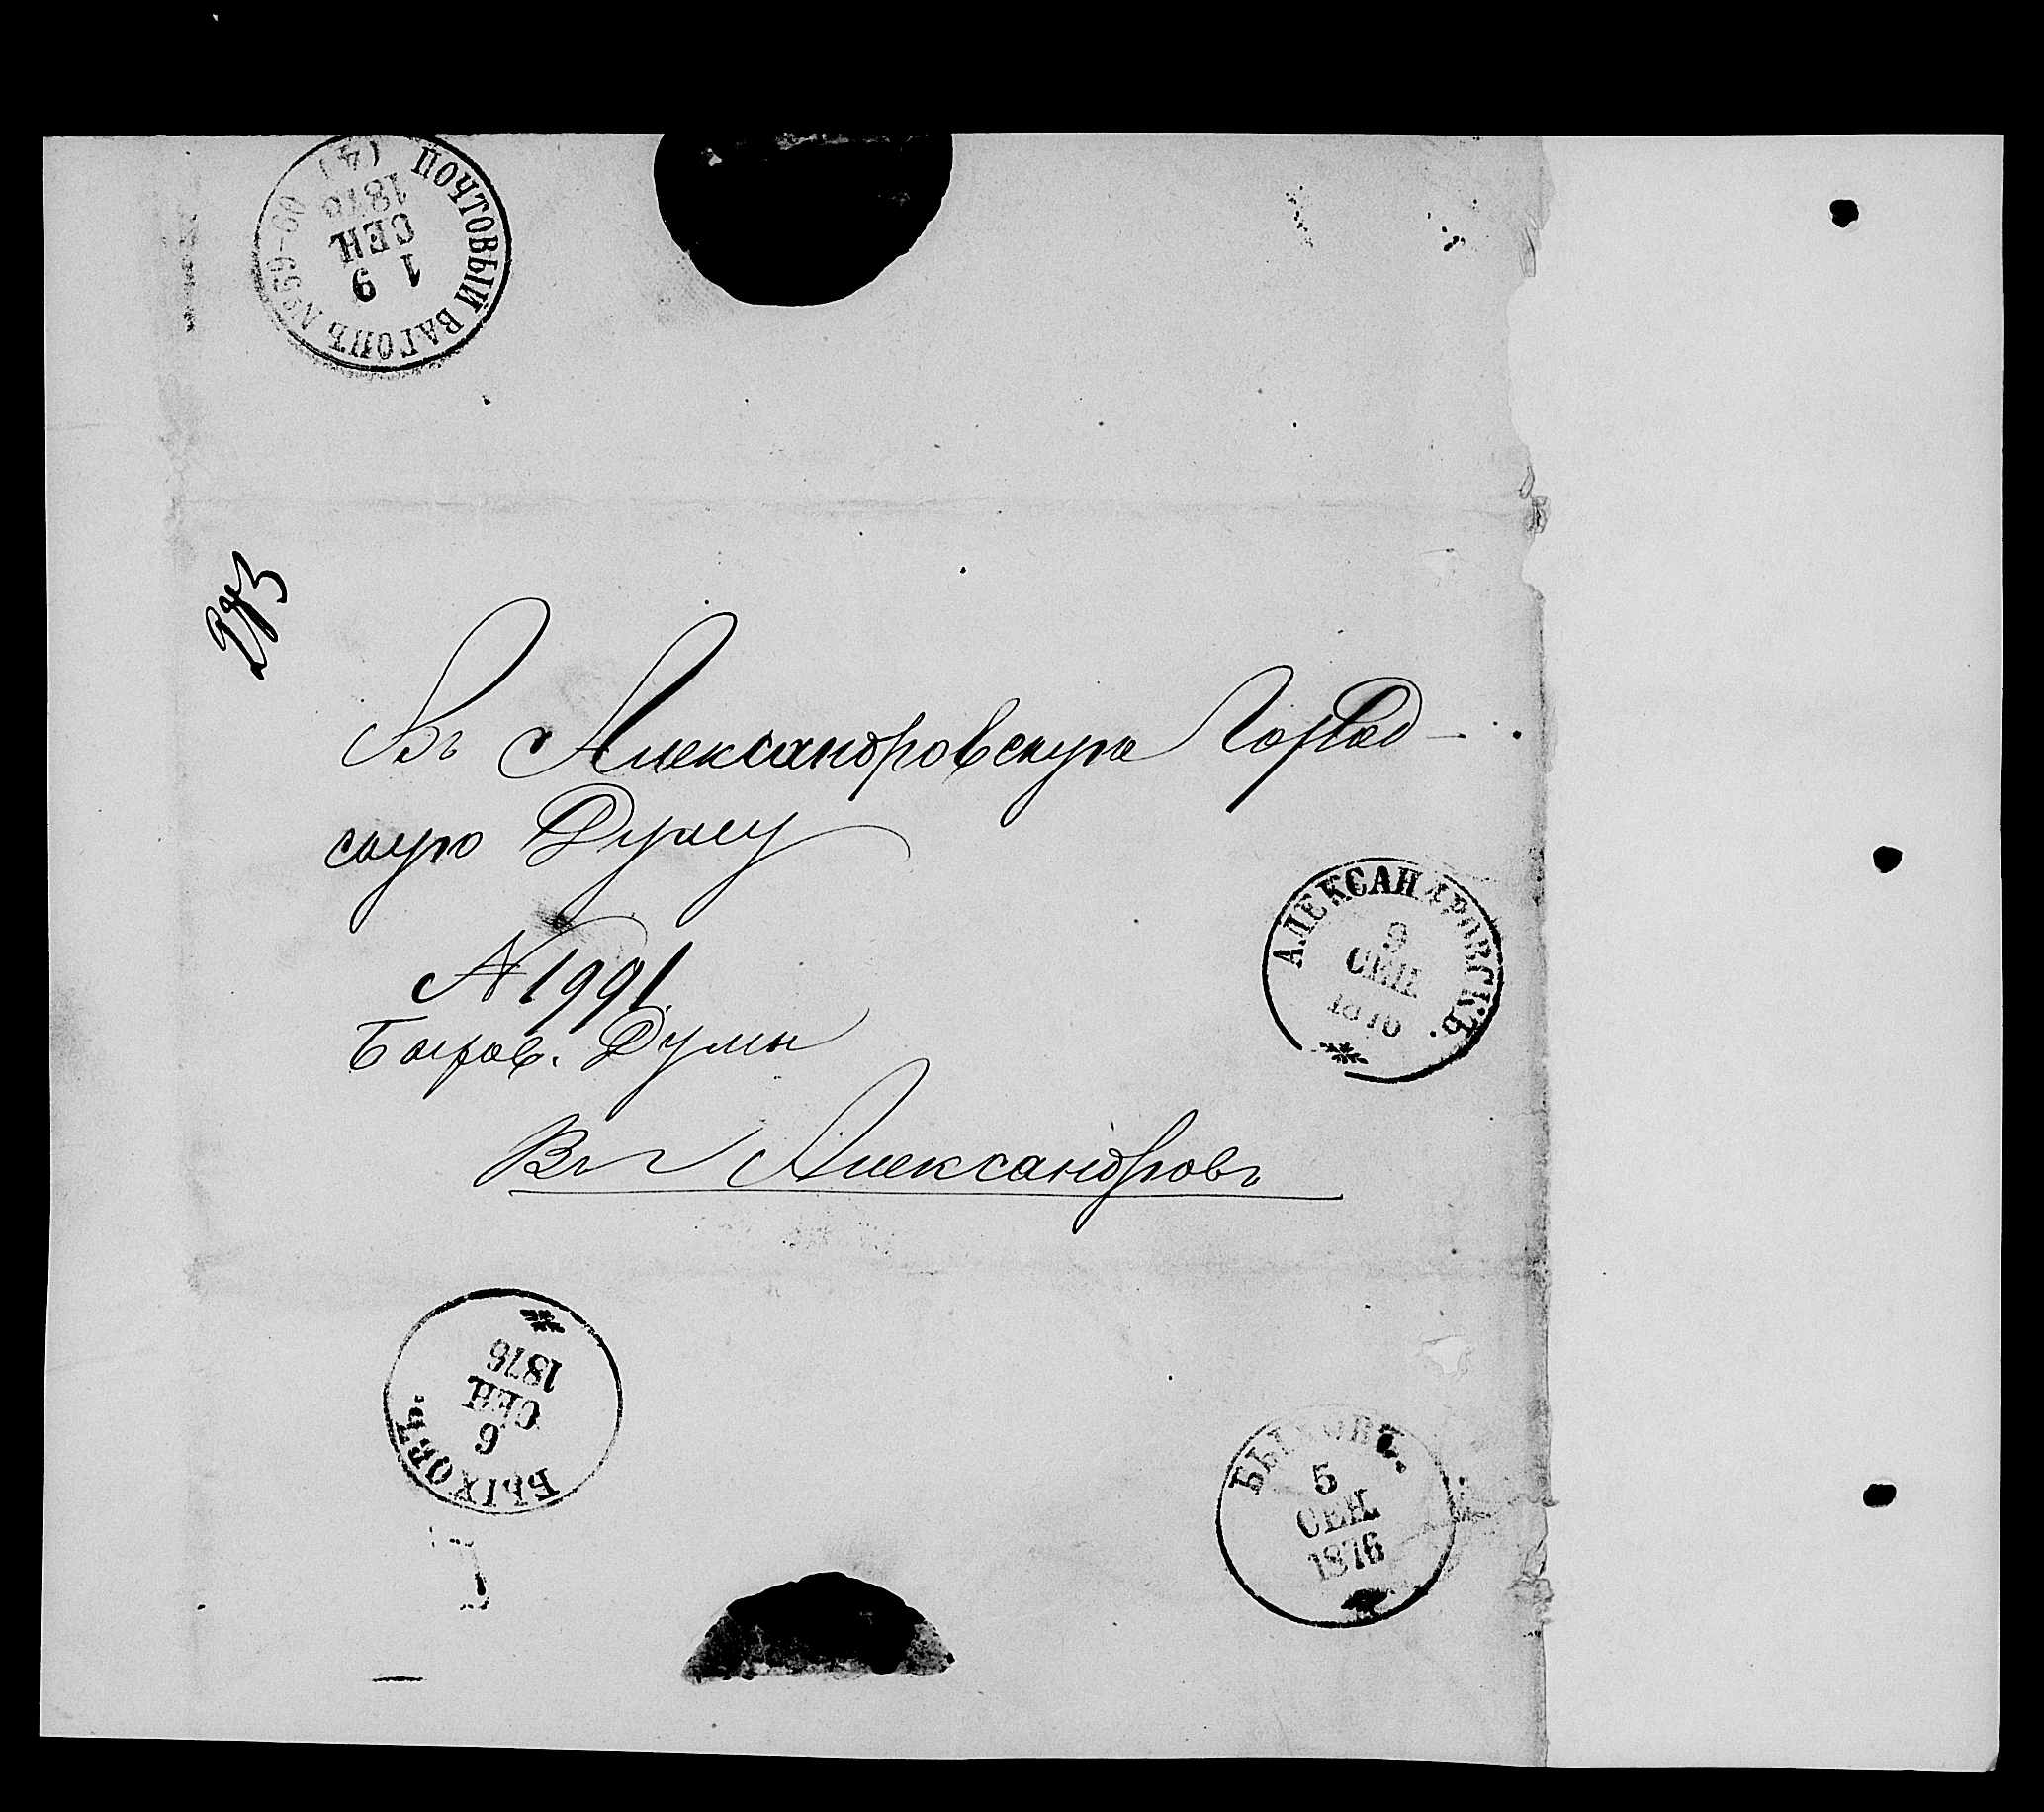 ПОЧТОВЫЙ ВАГОНЪ № 59-60 (4)
1 9
СЕН.
1876
Въ Александровскую Город-
скую Думу
N 1991.
Думы
Въ г Александровъ
АЛЕКСАНДРОВСКЪ.
9
СЕН.
1876
БЫХОВЪ.
6
СЕН.
1876
БЫХОВЪ.
5
СЕН.
1876